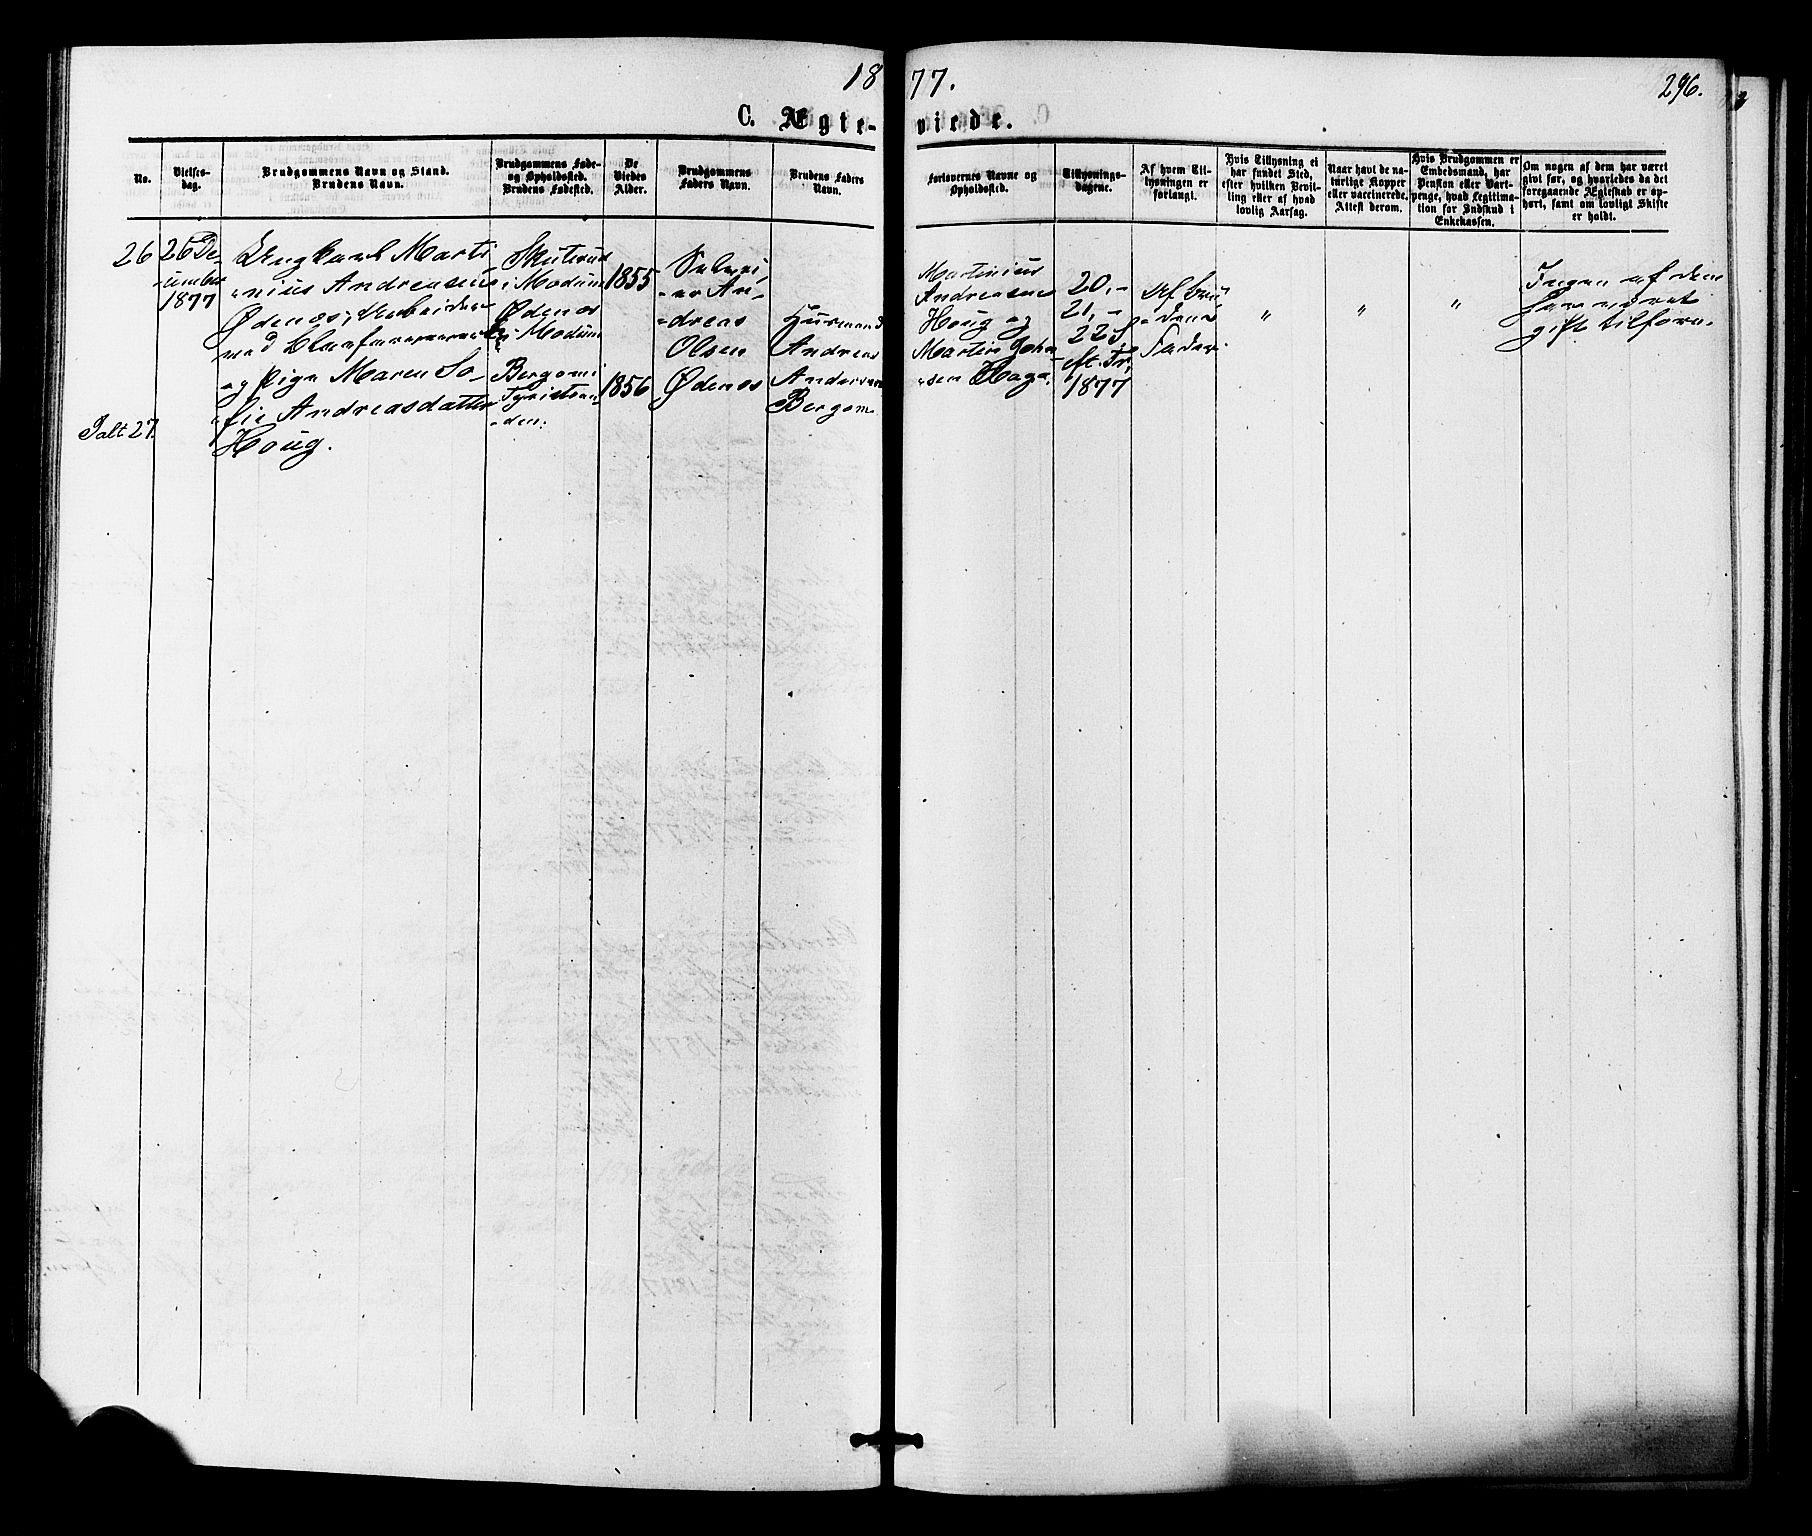 18 77.
296.
C. Ægte- viede.
No.
Vielses-
dag.
Brudgommens Navn og Stand.
Brudens Navn.
Brudgommens Føde-
og Opholdssted.
Brudens Fødested.
De
Viedes
Alder.
Brudgommens
Faders Navn.
Brudens Faders
Navn.
Forlovernes Navne og
Opholdssted.
Tillysnings-
dagene.
Af hvem Til-
lysningen er
forlangt.
Hvis Tillysning ei
har fundet Sted,
efter hvilken Bevil-
ling eller af hvad
lovlig Aarsag.
Naar havt de na-
turlige Kopper
eller vaccinerede.
Attest derom.
Hvis Brudgommen er
Embedsmand, har
Pension eller Vart-
penge, hvad Legitima-
tion for Indskud i
Enkekassen.
Om nogen af dem har været
givt før, og hvorledes da det
foregaaende Ægteskab er op-
hørt, samt om lovligt Skifte
er holdt.
26
26 De-
cember
1877
Ungkarl Marti
nius Andreasen
Ødenos, Arbeider
ved Blaafarveværket
og Pige Maren So-
fie Andreasdatter
Houg.
Skuterud
i Modum
Ødenos
i Modum
Bergom i
Tyristran-
den.
1855
1856
An-
dreas
Olsen
Ødenos
Husmand
Andreas
Andersen
Bergom
Martinius
Andreasen
Houg og
Martin Johan-
sen
20,-
21,-
22 S.
eft. Tr,
1877
Af Bru-
dens
Fader.
"
"
"
Ingen af dem
har været
gift tilforn.
Ialt 27.